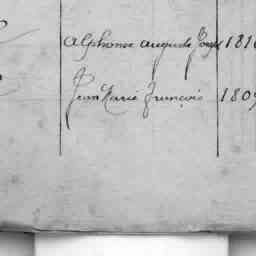 Alphonse auguste Joseph 181
Jean Marie françois 1809